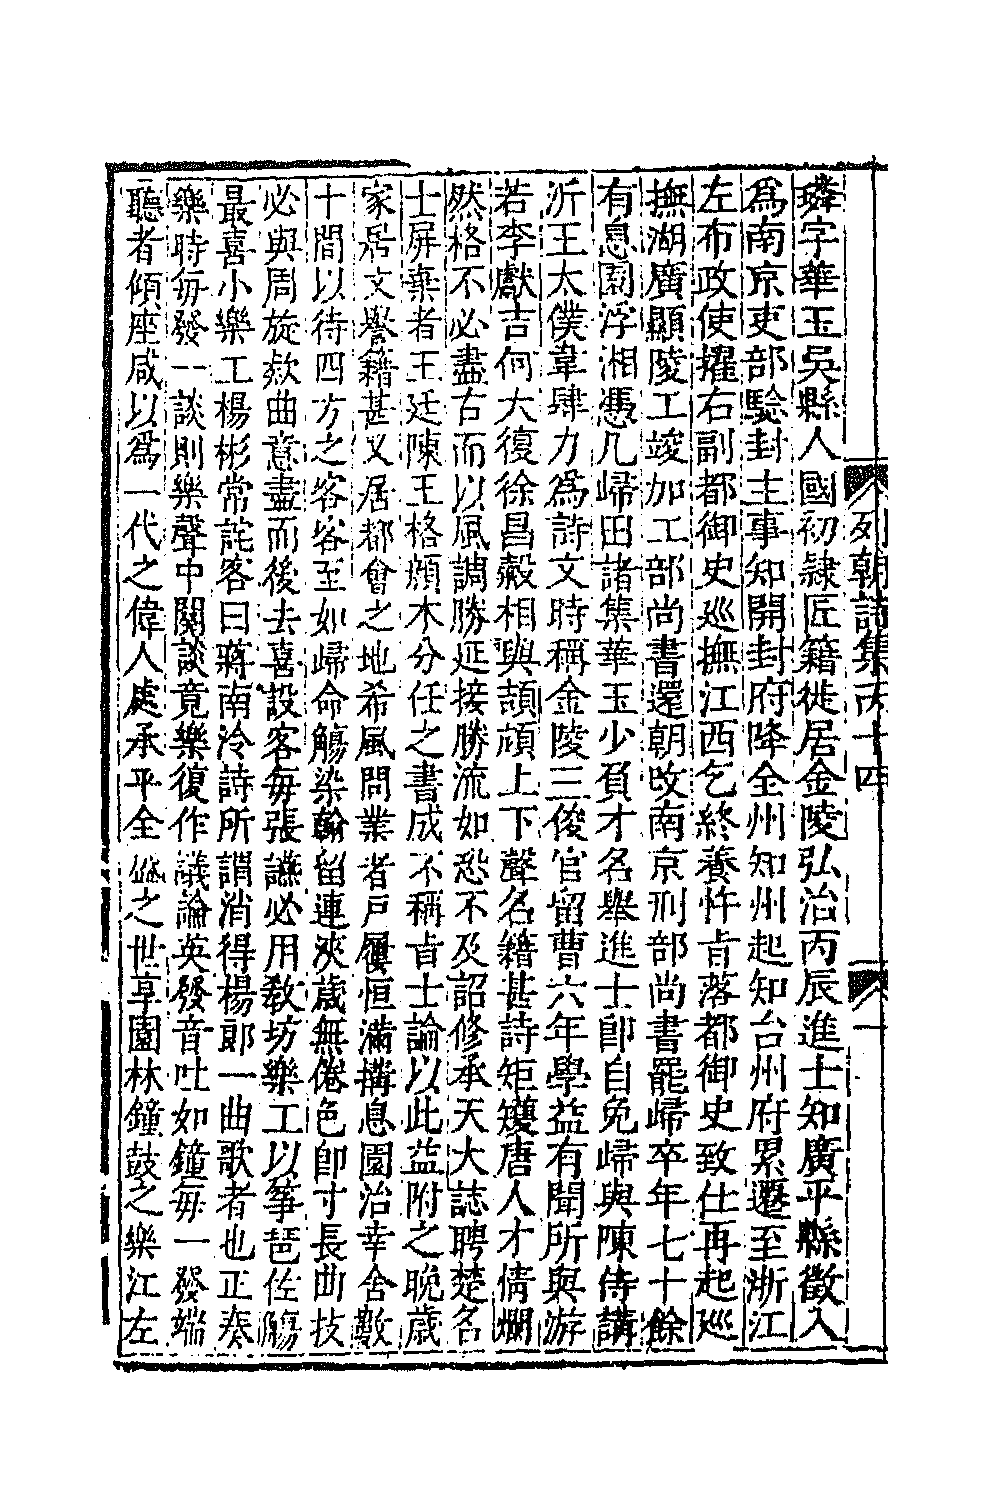 列朝詩集丙十四
一
璘字華玉吳縣人國初隷匠籍徙居金陵弘治丙辰進士知廣平縣徵入
爲南京吏部驗封主事知開封府降全州知州起知台州府累遷至浙江
左布政使擢右副都御史巡撫江西乞終養忤旨落都御史致仕再起巡
撫湖廣顯陵工竣加工部尚書還朝攺南京刑部尚書罷歸卒年七十餘
有息園浮湘憑几歸田諸集華玉少負才名舉進士卽自免歸與陳侍講
沂王太僕韋肆力爲詩文時稱金陵三俊官留曹六年學益有聞所與游
若李獻吉何大復徐昌穀相與頡頏上下聲名籍甚詩矩矱唐人才情爛
然格不必盡古而以風調勝延接勝流如恐不及詔修承天大誌聘楚名
士屏棄者王廷陳王格顔木分任之書成不稱旨士論以此益附之晚歳
家居文譽籍甚又居都會之地希風問業者戶屨恒滿搆息園治幸舍數
十間以待四方之客客至如歸命觴染翰留連浹歲無倦色卽寸長曲技
必與周旋欵曲意盡而後去喜設客每張讌必用敎坊樂工以筝琶佐觴
最喜小樂工楊彬常詫客曰蔣南泠詩所謂消得楊郞一曲歌者也正奏
樂時每發一談則樂聲中闋談竟樂復作議論英發音吐如鐘每一發端
聽者傾座咸以爲一代之偉人處承平全盛之世享園林鐘鼓之樂江左